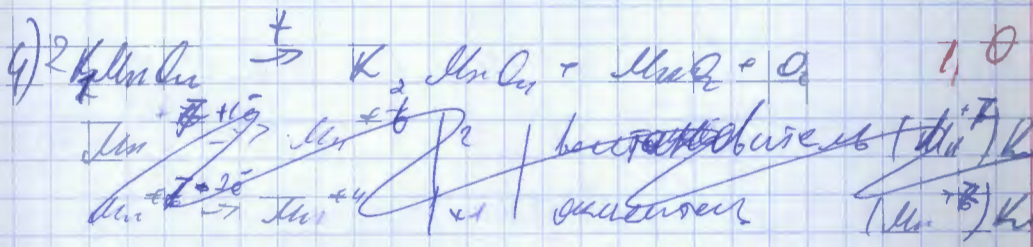 4) 2KMnO₄ t→ K₂MnO₄ + MnO₂ + O₂ 1,0
Mn⁺⁷ +1ē → Mn⁺⁶ | 2 | восстановитель (Mn⁺⁷) K
Mn → Mn⁺⁴ | x1 | окислитель (Mn) K